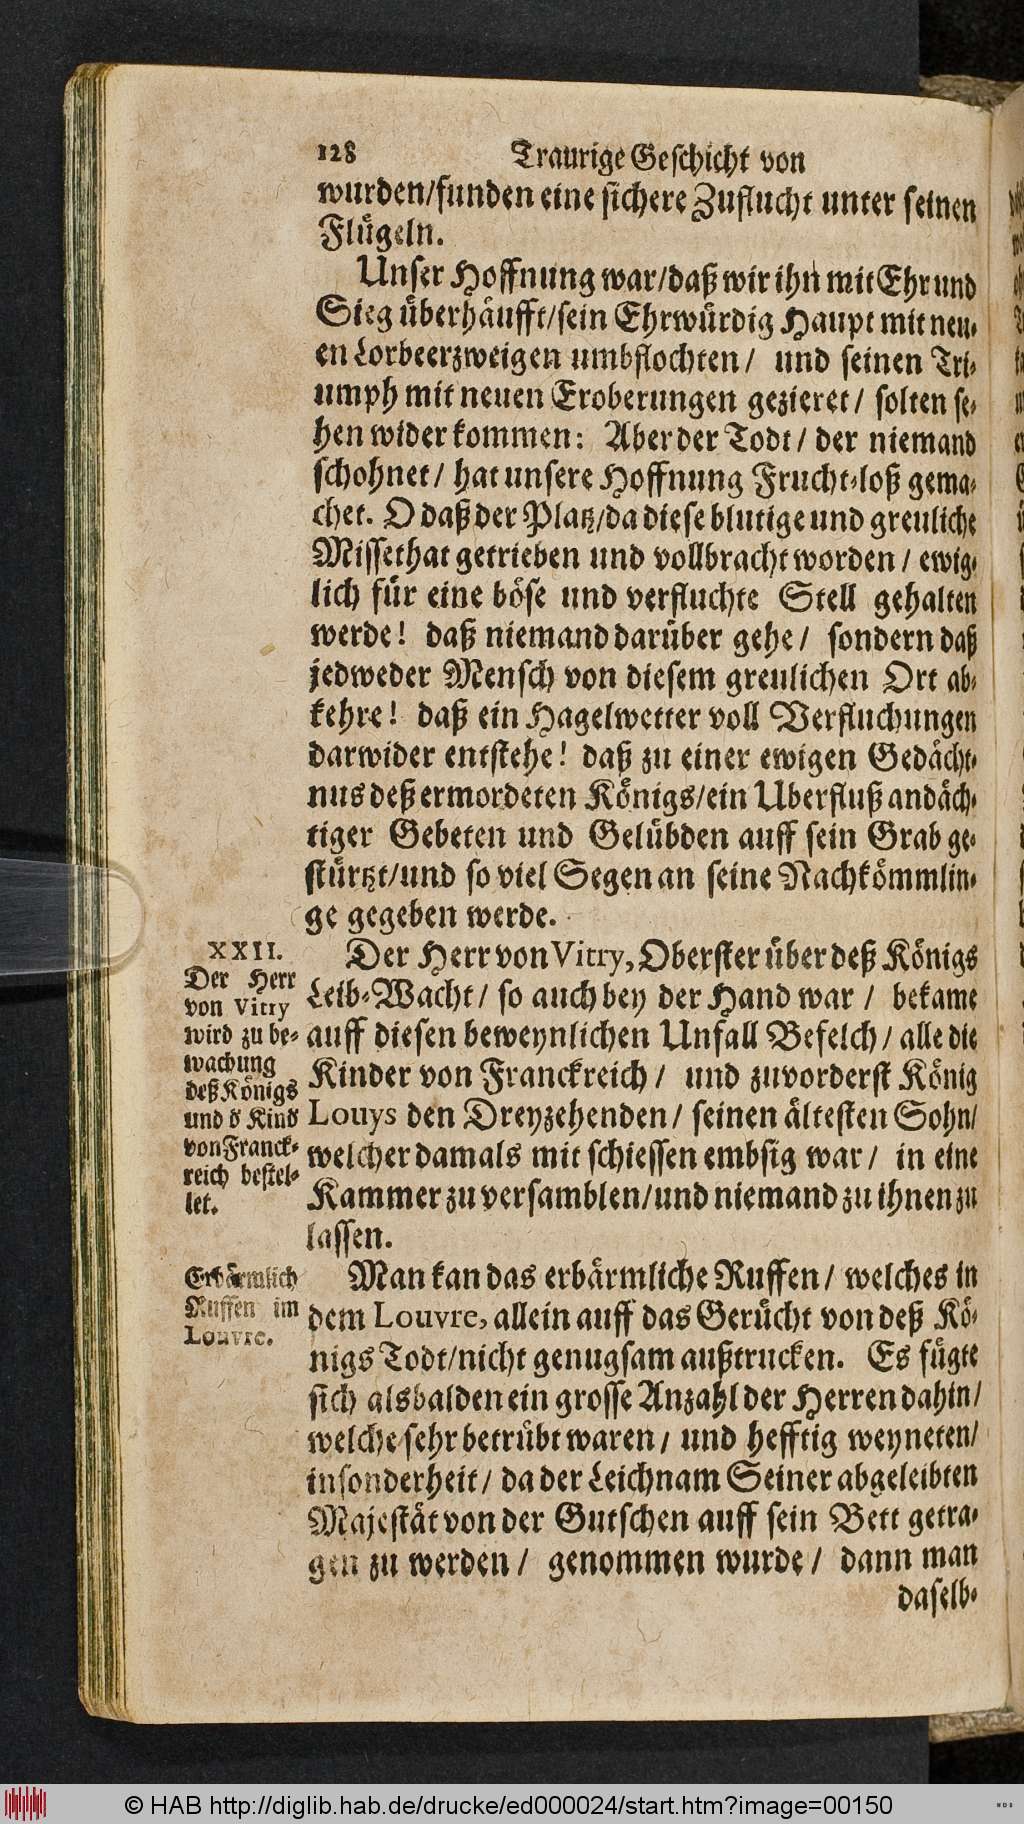 128 Traurige Geschicht von
wurden/funden eine sichere Zuflucht unter seinen
Flügeln.
Unser Hoffnung war/daß wir ihn mit Ehr und
Sieg überhäufft/sein Ehrwürdig Haupt mit neu-
en Lorbeerzweigen umbflochten/ und seinen Tri-
umph mit neuen Eroberungen gezieret/ solten se-
hen wider kommen: Aber der Todt/ der niemand
schohnet/ hat unsere Hoffnung Frucht-loß gema-
chet. O daß der Platz/da diese blutige und greuliche
Missethat getrieben und vollbracht worden/ ewig-
lich für eine böse und verfluchte Stell gehalten
werde! daß niemand darüber gehe/ sondern daß
jedweder Mensch von diesem greulichen Ort ab-
kehre! daß ein Hagelwetter voll Verfluchungen
darwider entstehe! daß zu einer ewigen Gedächt-
nus deß ermordeten Königs/ein Uberfluß andäch-
tiger Gebeten und Gelübden auff sein Grab ge-
stürtzt/und so viel Segen an seine Nachkömmlin-
ge gegeben werde.
XXII.
Der Herr
von Vitry
wird zu be-
wachung
deß Königs
und d Kind
von Franck-
reich bestel-
let.
Der Herr von Vitry, Oberster über deß Königs
Leib-Wacht/ so auch bey der Hand war/ bekame
auff diesen beweynlichen Unfall Befelch/ alle die
Kinder von Franckreich/ und zuvorderst König
Louys den Dreyzehenden/ seinen ältesten Sohn/
welcher damals mit schiessen embsig war/ in eine
Kammer zu versamblen/und niemand zu ihnen zu
lassen.
Erbärmlich
Ruffen im
Louvre.
Man kan das erbärmliche Ruffen/ welches in
dem Louvre, allein auff das Gerücht von deß Kö-
nigs Todt/nicht genugsam außtrucken. Es fügte
sich alsbalden ein grosse Anzahl der Herren dahin/
welche sehr betrübt waren/ und hefftig weyneten/
insonderheit/ da der Leichnam Seiner abgeleibten
Majestät von der Gutschen auff sein Bett getra-
gen zu werden/ genommen wurde/ dann man
daselb-
© HAB http://diglib.hab.de/drucke/ed000024/start.htm?image=00150